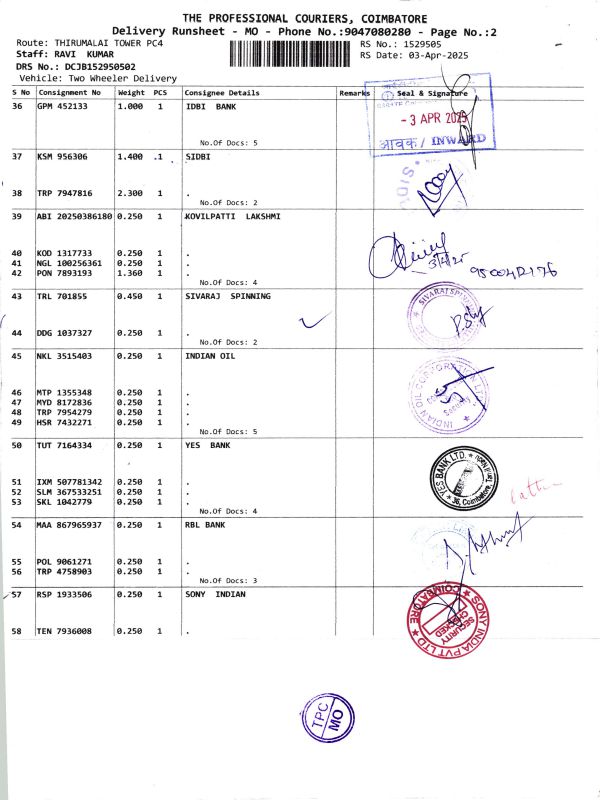 THE PROFESSIONAL COURIERS, COIMBATORE
Delivery Runsheet - MO - Phone No.:9047080280 - Page No.:2
Route: THIRUMALAI TOWER PC4 RS No.: 1529505
Staff: RAVI KUMAR RS Date: 03-Apr-2025
DRS No.: DCJB152950502
Vehicle: Two Wheeler Delivery
S No Consignment No Weight PCS Consignee Details Remarks Seal & Signature
36 GPM 452133 1.000 1 IDBI BANK
- 3 APR 2025
No.Of Docs: 5 आवक / INWARD
37 KSM 956306 1.400 .1 SIDBI
SIDB
38 TRP 7947816 2.300 1 .
No.Of Docs: 2
39 ABI 20250386180 0.250 1 KOVILPATTI LAKSHMI
40 KOD 1317733 0.250 1 .
41 NGL 100256361 0.250 1 .
3/4/25
42 PON 7893193 1.360 1 .
No.Of Docs: 4
43 TRL 701855 0.450 1 SIVARAJ SPINNING
SIVARAJ SPIN
44 DDG 1037327 0.250 1 .
No.Of Docs: 2
45 NKL 3515403 0.250 1 INDIAN OIL
INDIAN OIL CORPORATION LTD
SECURITY
46 MTP 1355348 0.250 1 .
47 MYD 8172836 0.250 1 .
48 TRP 7954279 0.250 1 .
49 HSR 7432271 0.250 1 .
No.Of Docs: 5
50 TUT 7164334 0.250 1 YES BANK
YES BANK LTD.
36, Coimbatore,
51 IXM 507781342 0.250 1 .
52 SLM 367533251 0.250 1 .
53 SKL 1042779 0.250 1 .
No.Of Docs: 4
54 MAA 867965937 0.250 1 RBL BANK
55 POL 9061271 0.250 1 .
56 TRP 4758903 0.250 1 .
No.Of Docs: 3
57 RSP 1933506 0.250 1 SONY INDIAN
SONY INDIA PVT LTD
COIMBATORE
SECURITY
CHECKED
58 TEN 7936008 0.250 1 .
TPC
MO